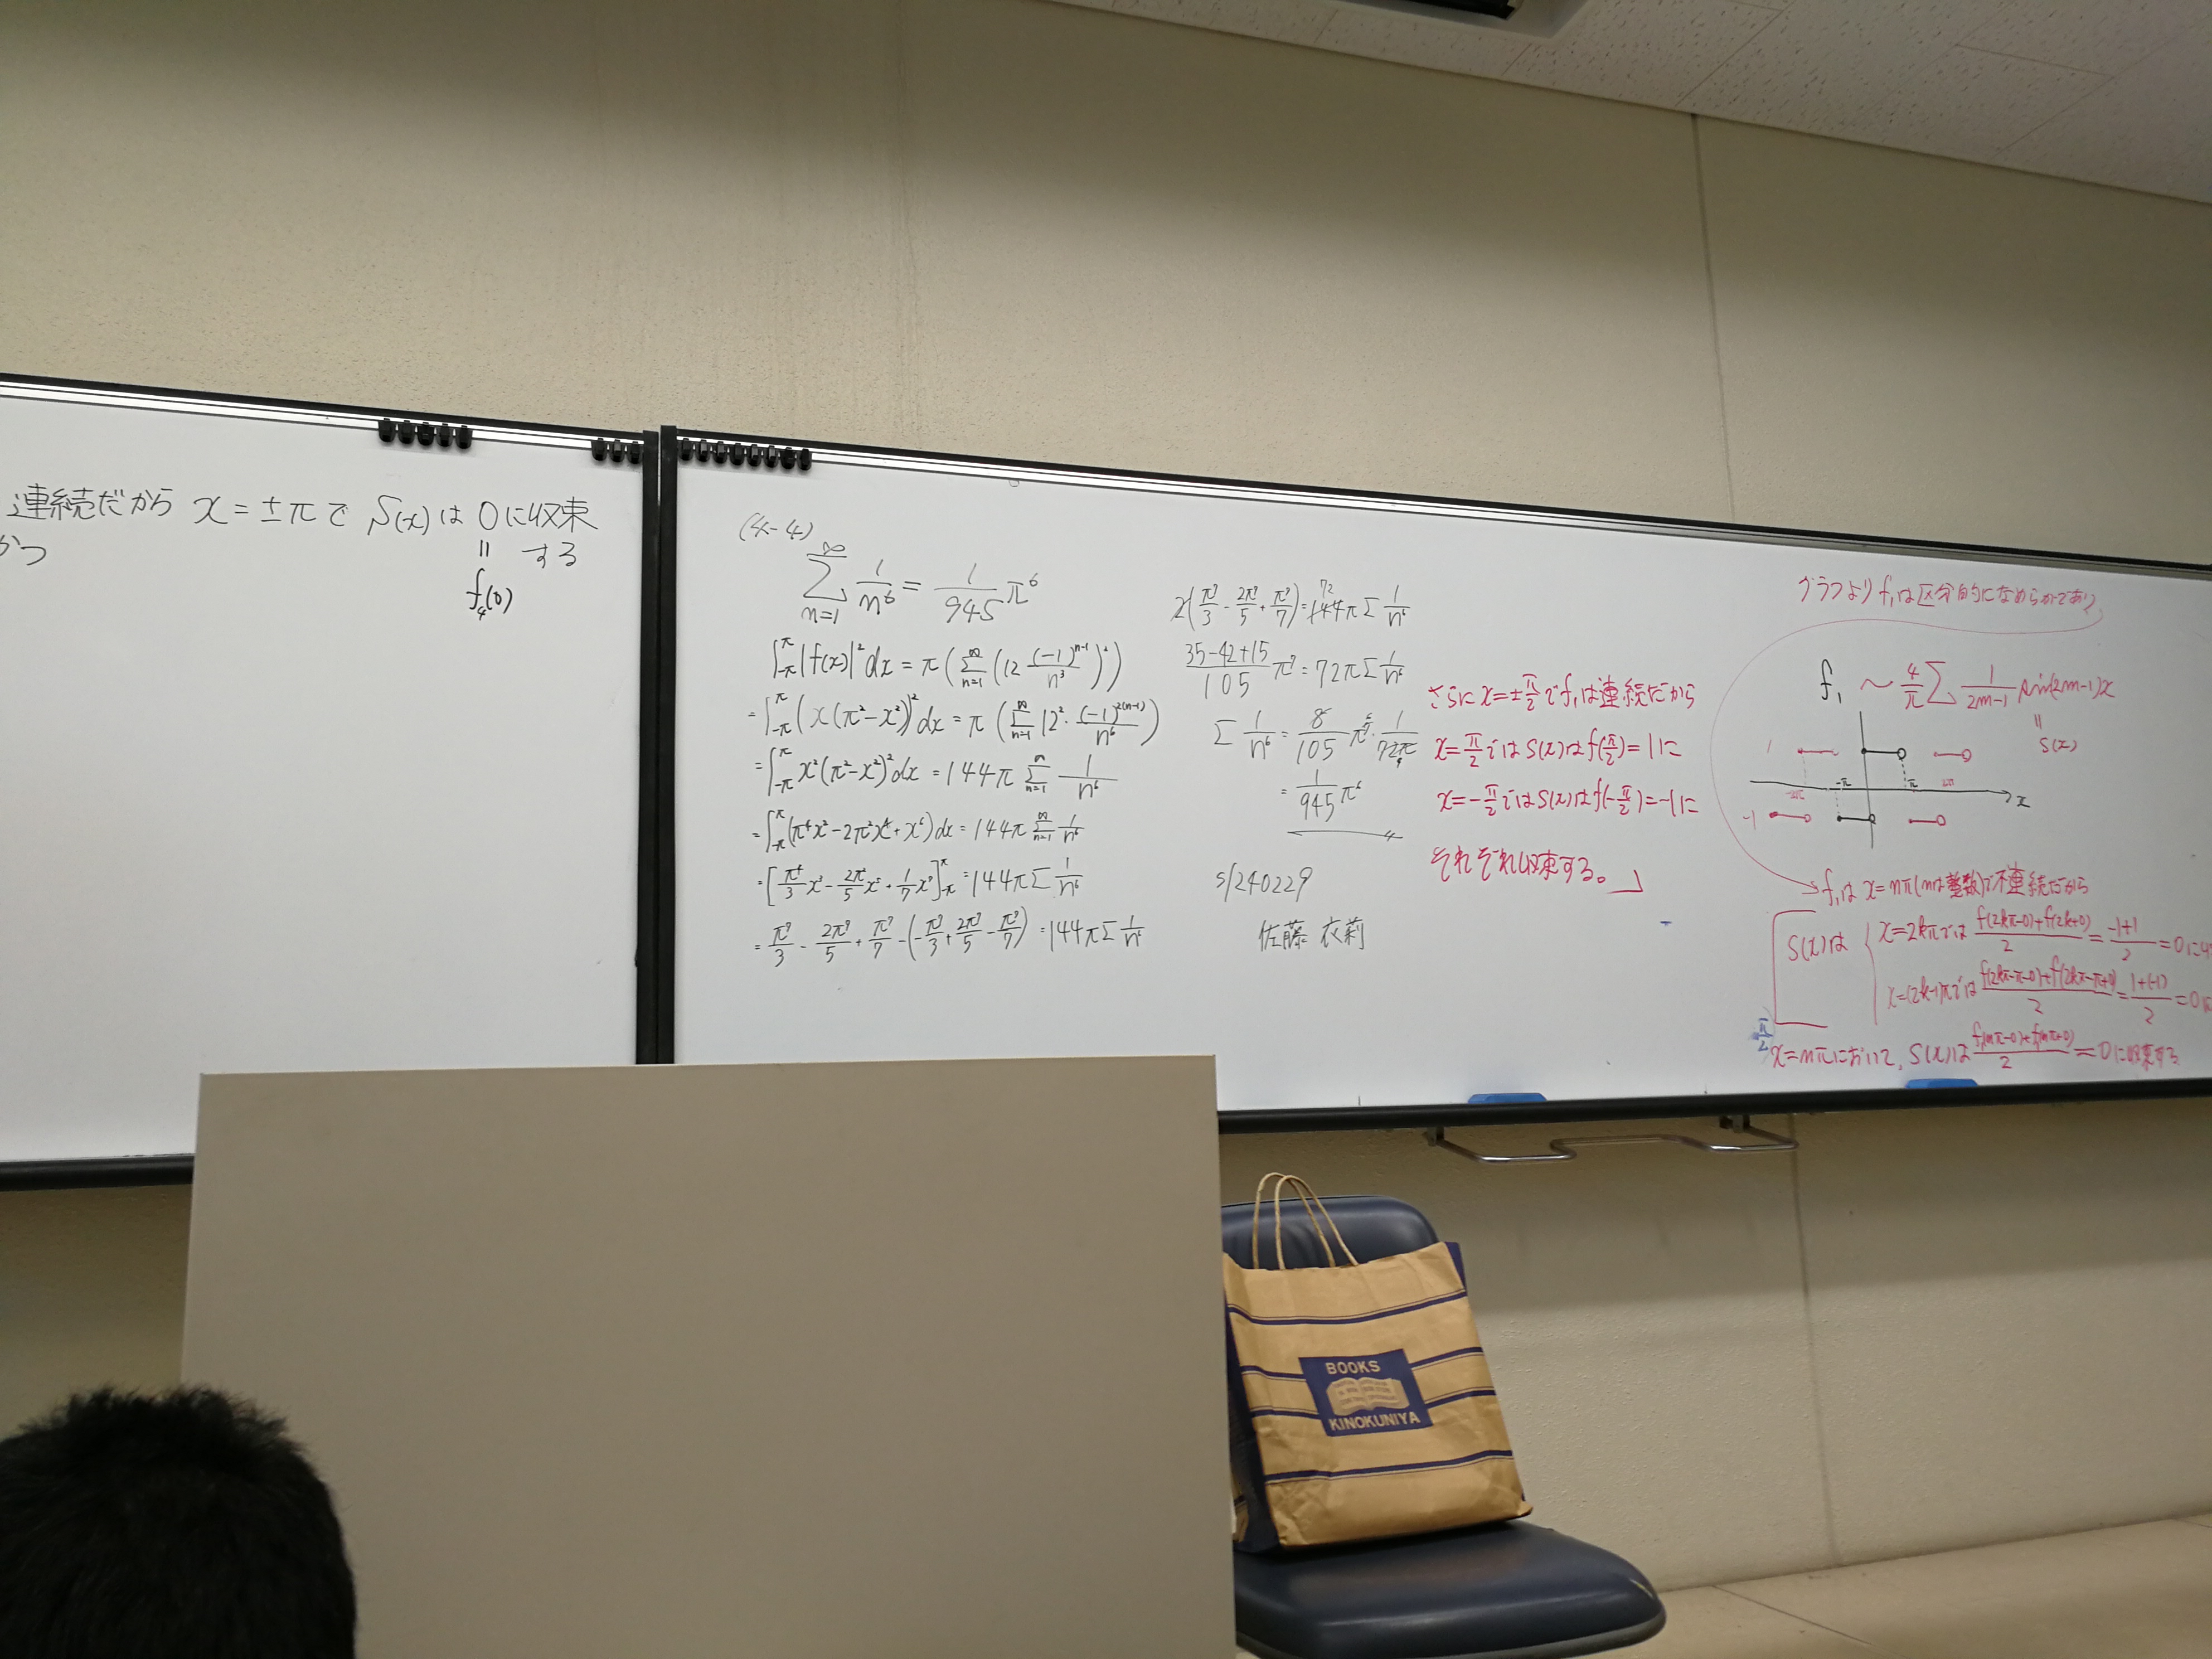 連続だから x = ±π で S(x) は 0 に収束
かつ
〃 する
f₄(0)
(4-4)
∑_{n=1}^{∞} 1/n⁶ = 1/945 π⁶
∫_{-π}^{π} |f(x)|² dx = π (∑_{n=1}^{∞} (12 (-1)^{n-1}/n³)²)
= ∫_{-π}^{π} (x(π²-x²))² dx = π (∑_{n=1}^{∞} 12² · (-1)^{2(n-1)}/n⁶)
= ∫_{-π}^{π} x²(π²-x²)² dx = 144π ∑_{n=1}^{∞} 1/n⁶
= ∫_{-π}^{π} (π⁴x² - 2π²x⁴ + x⁶) dx = 144π ∑_{n=1}^{∞} 1/n⁶
= [π⁴/3 x³ - 2π²/5 x⁵ + 1/7 x⁷]_{-π}^{π} = 144π ∑ 1/n⁶
= π⁷/3 - 2π⁷/5 + π⁷/7 - (-π⁷/3 + 2π⁷/5 - π⁷/7) = 144π ∑ 1/n⁶
2(π⁷/3 - 2π⁷/5 + π⁷/7) = 144π ∑ 1/n⁶
72
(35-42+15)/105 π⁷ = 72π ∑ 1/n⁶
∑ 1/n⁶ = 8/105 π⁷ · 1/72π
6
9
= 1/945 π⁶
s1240229
佐藤 衣莉
さらに x=±π/2 で f₁は連続だから
x=π/2 では S(x)は f(π/2)=1に
x=-π/2 では S(x)は f(-π/2)=-1に
それぞれ収束する。
グラフより f₁は区分的になめらかであり
f₁ ~ 4/π ∑ 1/(2m-1) sin(2m-1)x
〃
S(x)
1
-2π -π π 2π x
-1
f₁は x=nπ(nは整数)で不連続だから
S(x)は { x=2kπでは (f(2kπ-0)+f(2k+0))/2 = (-1+1)/2 = 0に
x=(2k-1)πでは (f(2kπ-π-0)+f(2kπ-π+0))/2 = (1+(-1))/2 = 0に
π/2
x=nπにおいて, S(x)は (f₁(nπ-0)+f₁(nπ+0))/2 = 0に収束する
BOOKS
KINOKUNIYA